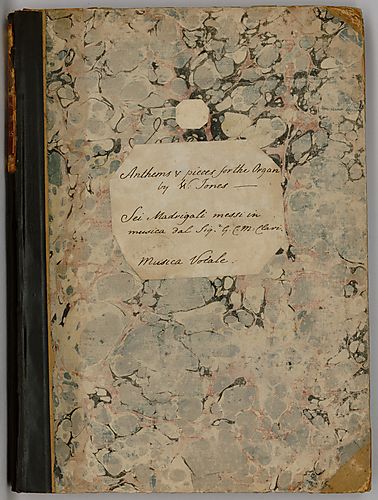 Anthems & pieces for the Organ
by W. Jones —
Sei Madrigali messi in
musica dal Sig.r G. C. M. Clari.
Musica Vocale.